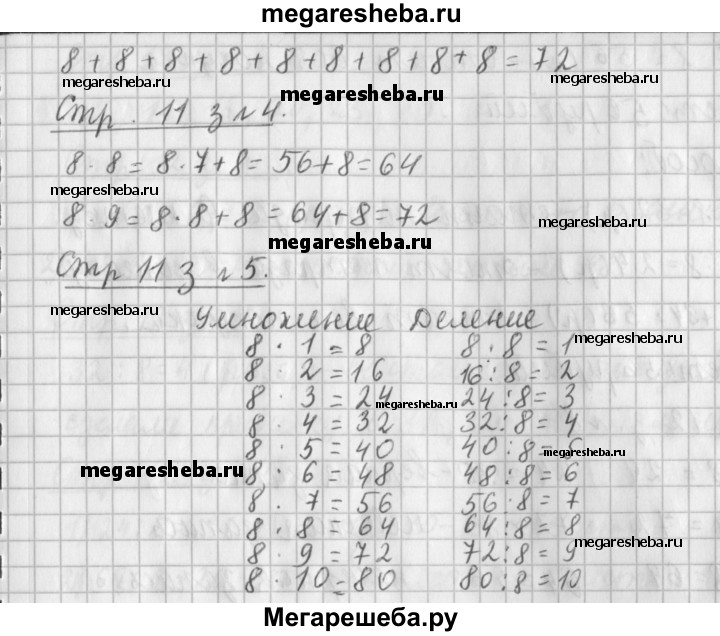 megaresheba.ru
8 + 8 + 8 + 8 + 8 + 8 + 8 + 8 + 8 = 72
megaresheba.ru megaresheba.ru
Стр. 11 з № 4. megaresheba.ru
8 · 8 = 8 · 7 + 8 = 56 + 8 = 64
megaresheba.ru
8 · 9 = 8 · 8 + 8 = 64 + 8 = 72 megaresheba.ru
megaresheba.ru
Стр 11 з № 5.
megaresheba.ru
Умножение Деление
8 · 1 = 8 8 : 8 = 1 megaresheba.ru
8 · 2 = 16 16 : 8 = 2
8 · 3 = 24 24 : 8 = 3
megaresheba.ru
8 · 4 = 32 32 : 8 = 4
8 · 5 = 40 40 : 8 = 5
megaresheba.ru
megaresheba.ru
8 · 6 = 48 48 : 8 = 6
8 · 7 = 56 56 : 8 = 7
8 · 8 = 64 64 : 8 = 8
megaresheba.ru
8 · 9 = 72 72 : 8 = 9
8 · 10 = 80 80 : 8 = 10
Мегарешеба.ру